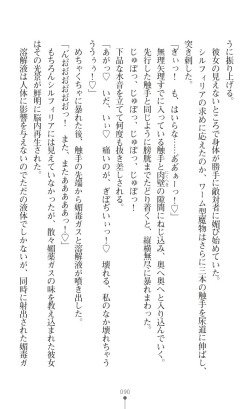 うに振り上げる。
彼女の見えないところで身体が勝手に敵対者に媚び始めていた。
シルフィリアの求めに応え、ワーム型魔物はさらに三本の触手を尿道に伸ばし、
突き刺した。
「ぎぃっ！　も、はいらな……あぁーっ！♡」
無理矢理すでに入っている触手と肉壁の隙間にねじ込み、奥へ奥へと入り込んでいく。
先行した触手と同じように膀胱までたどり着くと、縦横無尽に暴れまわった。
じゅぼっ、じゅぼっ、じゅぼっ！
下品な水音を立てて何度も抜き差しされる。
「あがっ♡　いだ、いぃっ♡　痛いのが、ぎぼぢいぃっ！♡　壊れる、私のなか壊れちゃう
ううぅ！♡」
めちゃくちゃに暴れた後、触手の先端から媚毒ガスと溶解液が噴き出した。
「んおおおおおおっ！♡　まだあああああっ！♡」
もちろんシルフィリアには見えていなかったが、散々媚薬ガスの味を教え込まれた彼女
はその光景が鮮明に脳内再生された。
溶解液は人体に影響を与えないのでただの液体でしかないが、同時に射出された媚毒ガ
090